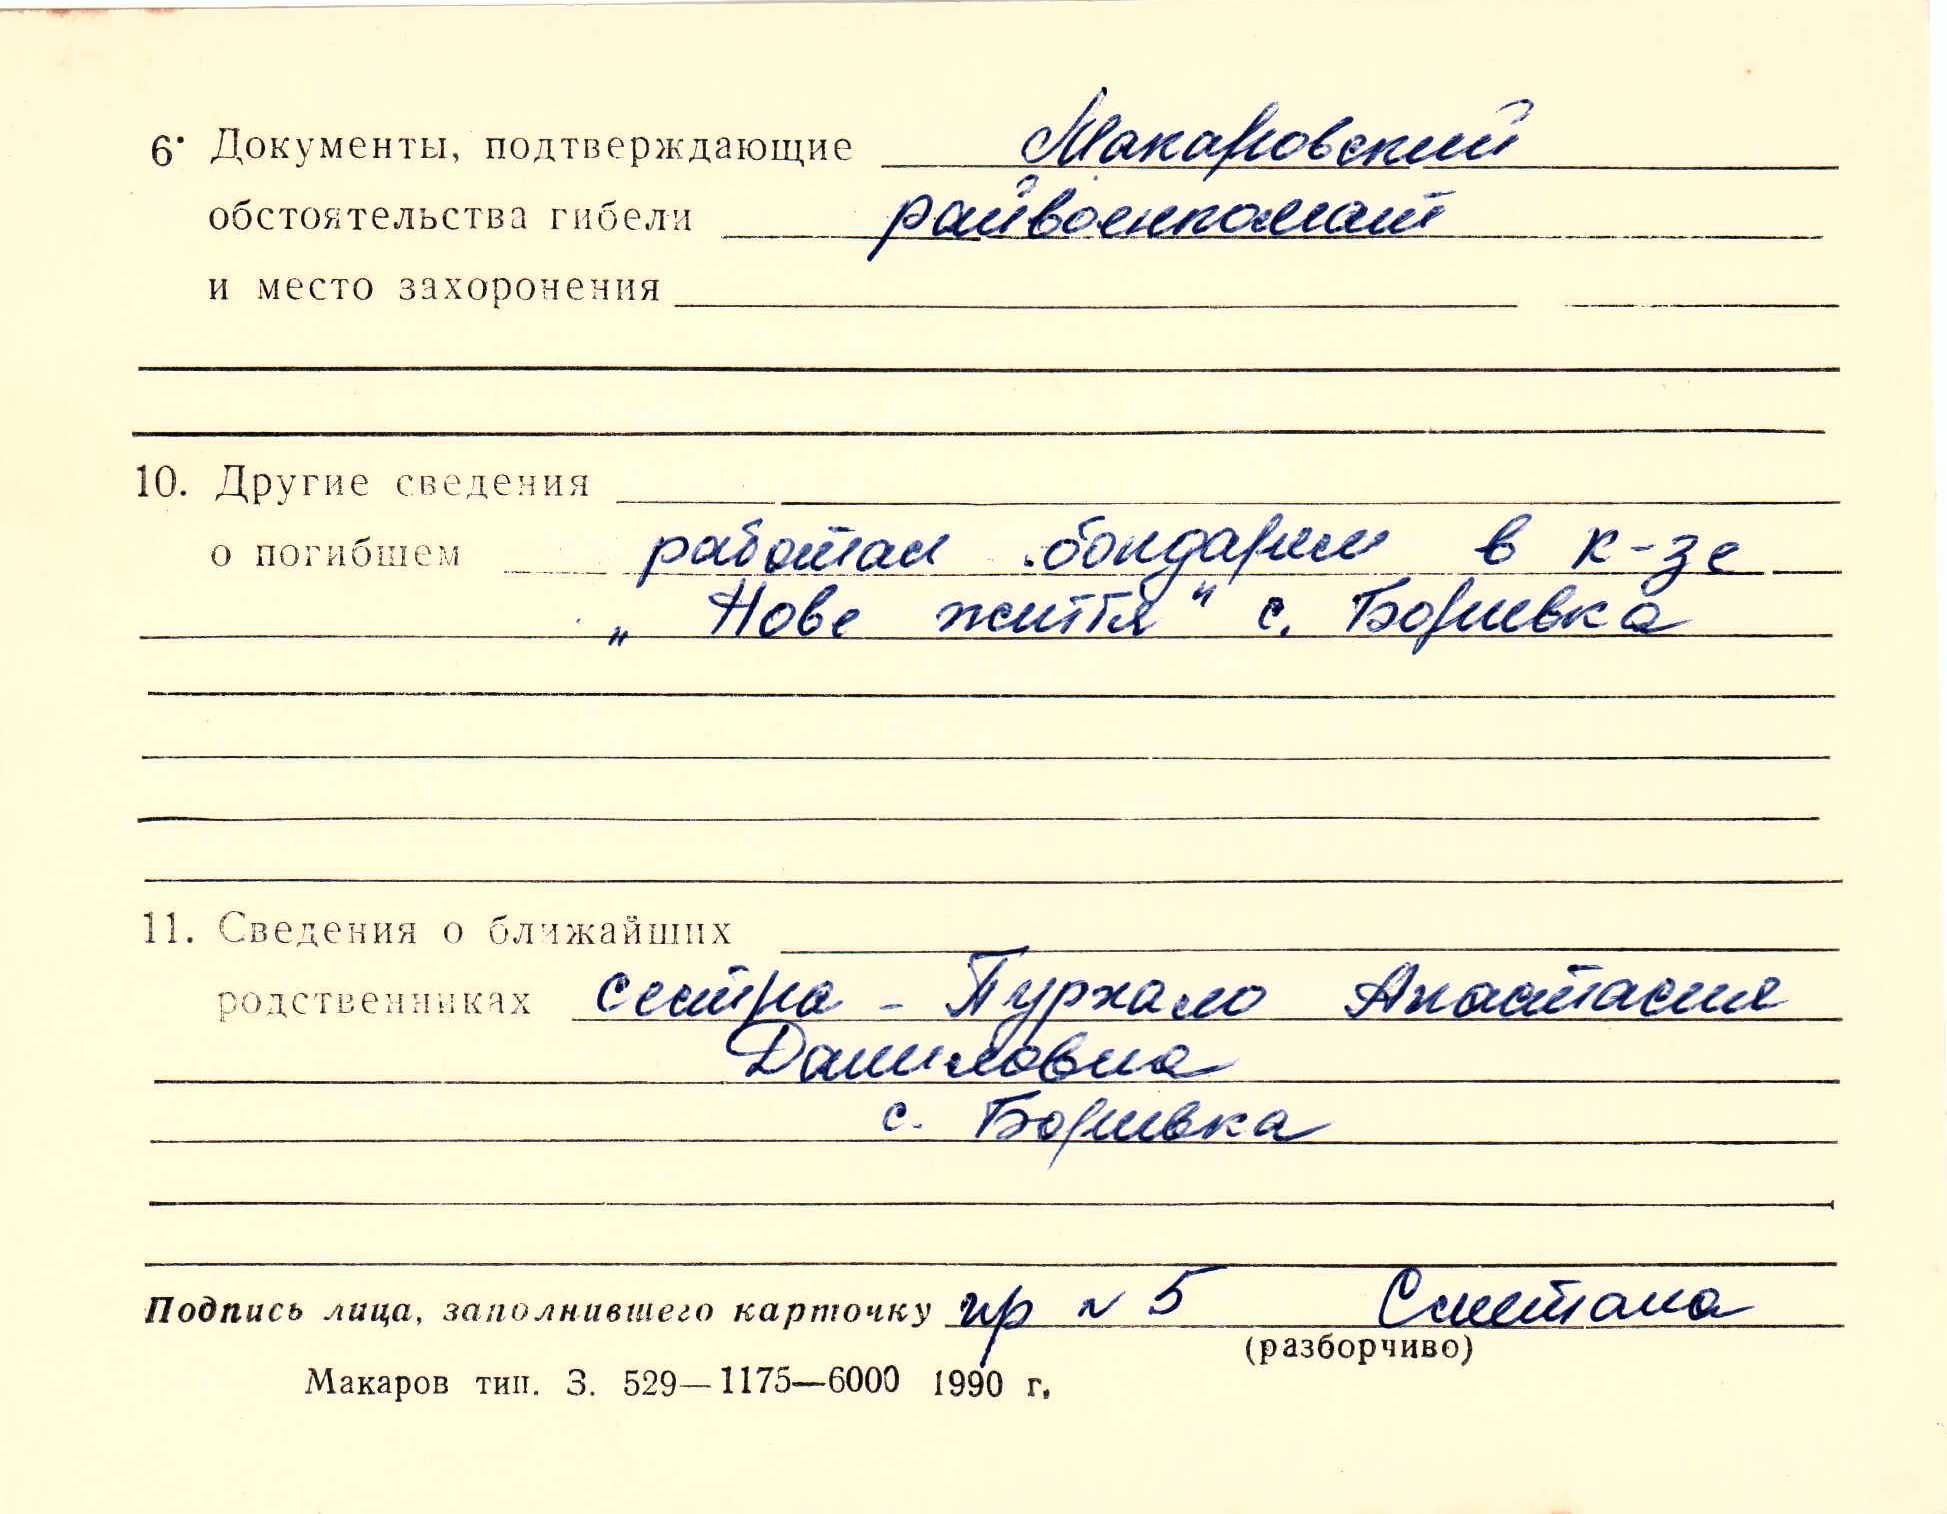 6. Документы, подтверждающие Макаровский
обстоятельства гибели райвоенкомат
и место захоронения
10. Другие сведения
о погибшем работал бондарем в к-зе
„Нове життя" с. Боривка
11. Сведения о ближайших
родственниках сестра - Пурхало Анастасия
Даниловна
с. Боривка
Подпись лица, заполнившего карточку пр N 5 Сметана
(разборчиво)
Макаров тип. З. 529—1175—6000 1990 г.